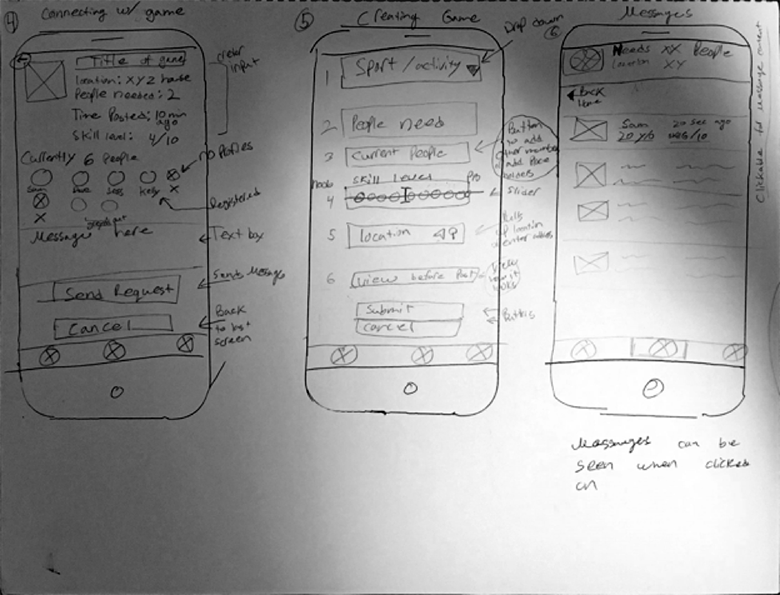 4 Connecting w/ game
Title of game
location: XYZ
People needed: 2
Time Posted: 10 min
ago
Skill level: 4/10
input
Currently 6 people
no Photos
Sam
Kelly
X
X
Registered
Messages here
Text box
Send Request
Sends Message
Cancel
Back
to last
screen
5 Creating Game
Drop down
1 Sport/activity
2 People need
3 Current People
Button
to add
other members
add
Skill Level
noob
Pro
4
Slider
5 location
location
enter address
6 View before Post
Submit
Cancel
Buttons
6 Messages
Needs XX People
location XY
Back
Home
Sam 20 sec ago
Clickable for message content
Messages can be
seen when clicked
on